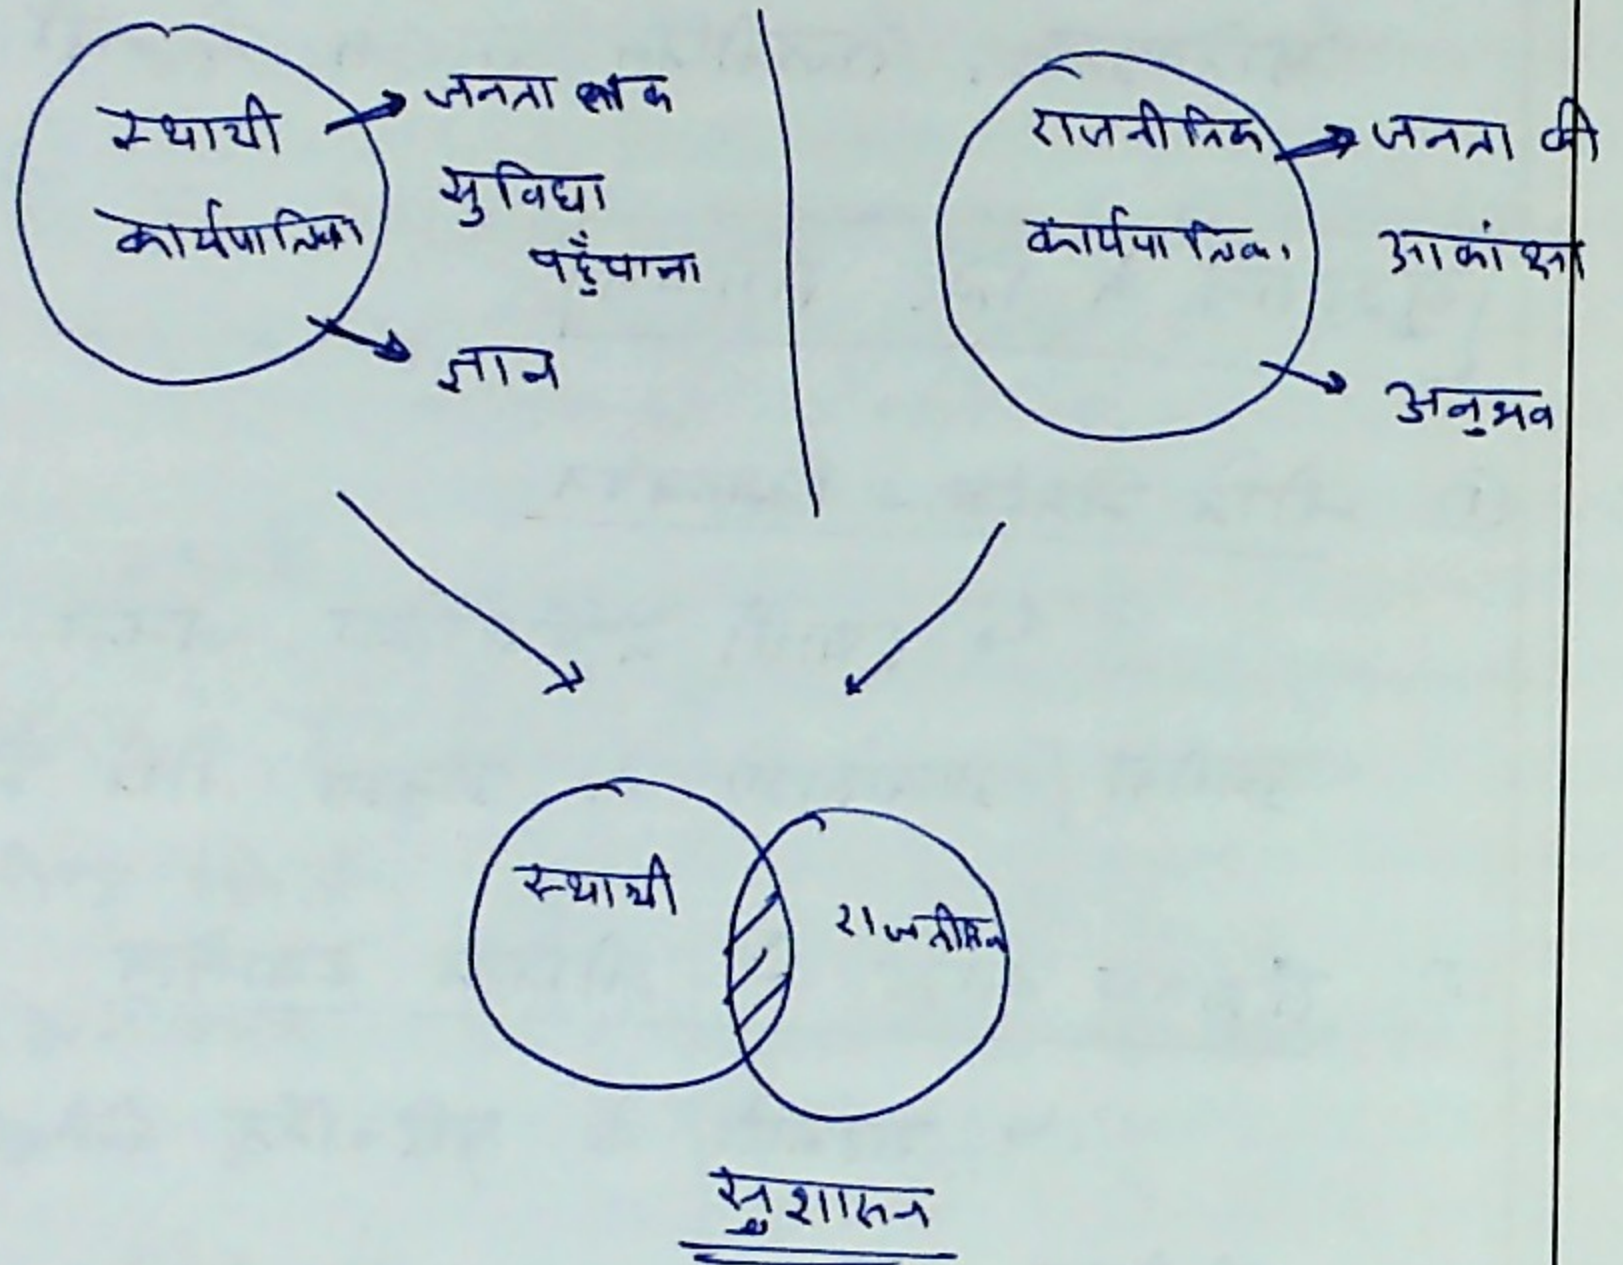 स्थायी
कार्यपालिका
जनता तक
सुविधा
पहुँचाना
ज्ञान
राजनीतिक
कार्यपालिका
जनता की
आकांक्षा
अनुभव
स्थायी
राजनीतिक
सुशासन